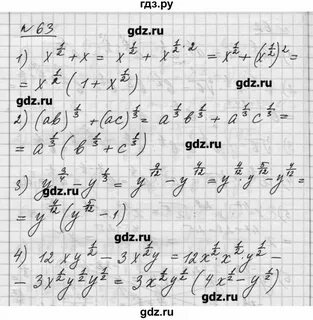 гдз.ru
№ 63 гдз.ru
1) x^(1/2) + x = x^(1/2) + x^(1/2 · 2) = x^(1/2) + (x^(1/2))^2 =
= x^(1/2) (1 + x^(1/2))
гдз.ru гдз.ru
2) (ab)^(1/3) + (ac)^(1/3) = a^(1/3) b^(1/3) + a^(1/3) c^(1/3) =
= a^(1/3) (b^(1/3) + c^(1/3))
гдз.ru гдз.ru
3) y^(3/4) - y^(1/3) = y^(9/12) - y^(4/12) = y^(4/12) y^(5/12) - y^(4/12) =
= y^(4/12) (y^(5/12) - 1)
гдз.ru гдз.ru
4) 12 x y^(1/2) - 3 x^(1/2) y = 12 x^(1/2) · x^(1/2) · y^(1/2) -
- 3 x^(1/2) y^(1/2) y^(1/2) = 3 x^(1/2) y^(1/2) (4 x^(1/2) - y^(1/2))
гдз.ru